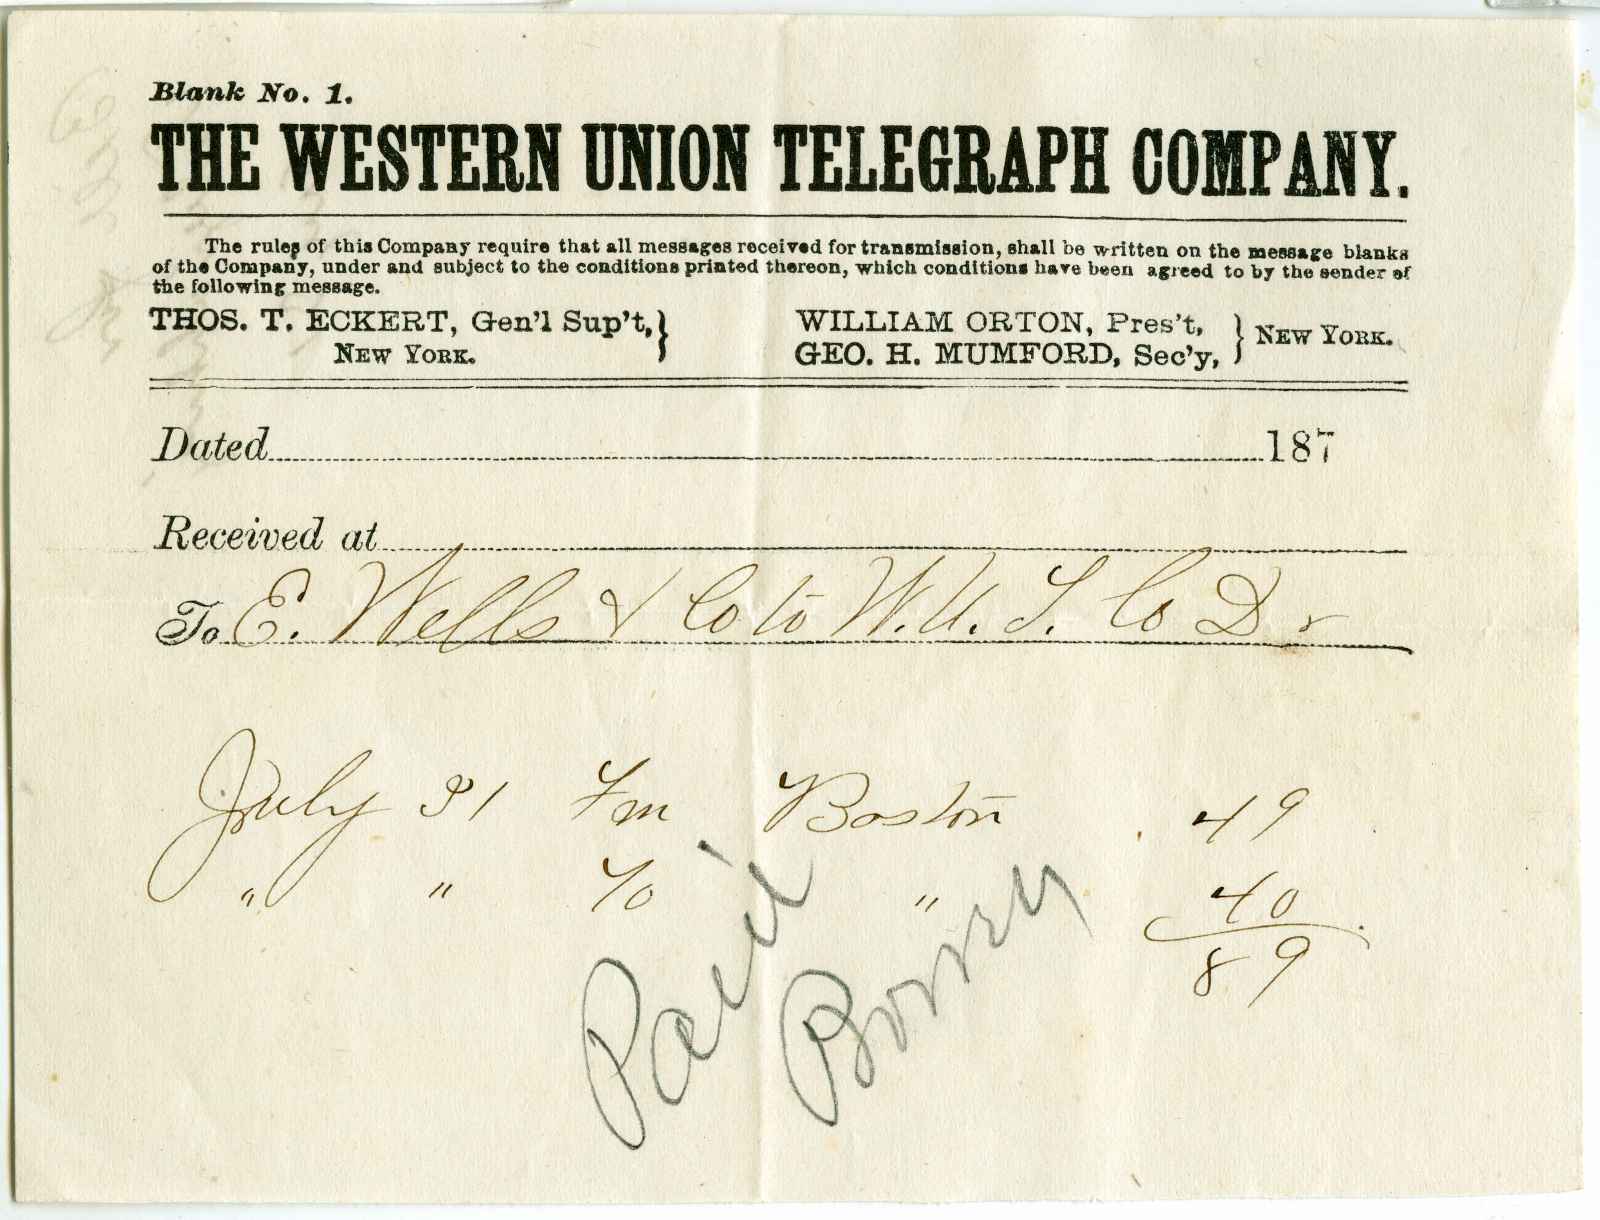 Blank No. 1.
THE WESTERN UNION TELEGRAPH COMPANY.
The rules of this Company require that all messages received for transmission, shall be written on the message blanks
of the Company, under and subject to the conditions printed thereon, which conditions have been agreed to by the sender of
the following message.
THOS. T. ECKERT, Gen'l Sup't,
NEW YORK.
WILLIAM ORTON, Pres't,
GEO. H. MUMFORD, Sec'y,
NEW YORK.
Dated 187
Received at
To E. Wells & Co to W. U. T. Co Dr
July 31 Fm Boston 49
" " To " 40
89
Paid